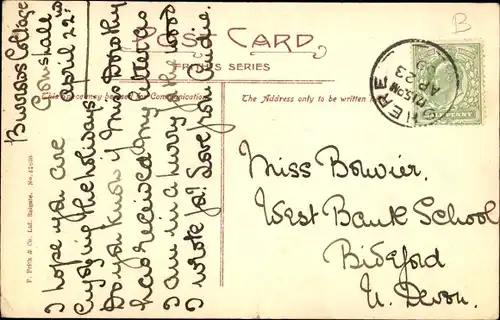 B
POST CARD
FRITH'S SERIES
This space may be used for Communication.
The Address only to be written here
SHERE
AP 23
Burrows Cottage
Gomshall
April 22nd
I hope you are
enjoying the holidays
Do you know if Miss Dorothy
has received my letter as
I am in a hurry to the
I wrote fa? Love from
Miss Bowier.
West Bank School
Bideford
N. Devon.
F. Frith & Co. Ltd. Reigate.